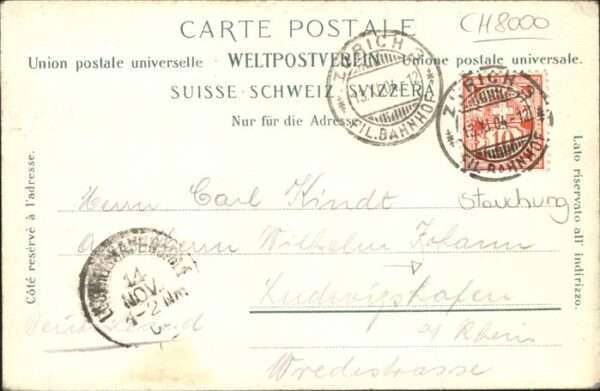 CARTE POSTALE
CH8000
Union postale universelle WELTPOSTVEREIN Unione postale universale.
SUISSE SCHWEIZ SVIZZERA
Nur für die Adresse
ZÜRICH
FIL. BAHNHOF
ZÜRICH
13.XI.04.-12
FIL. BAHNHOF
10
Côté reservé à l'adresse.
Lato riservato all' indirizzo.
Herrn Carl Kindt
Wilhelm
Ludwigshafen
a/ Rhein
Wredestrasse
Deutschland
14
NOV.
1-2 Nm